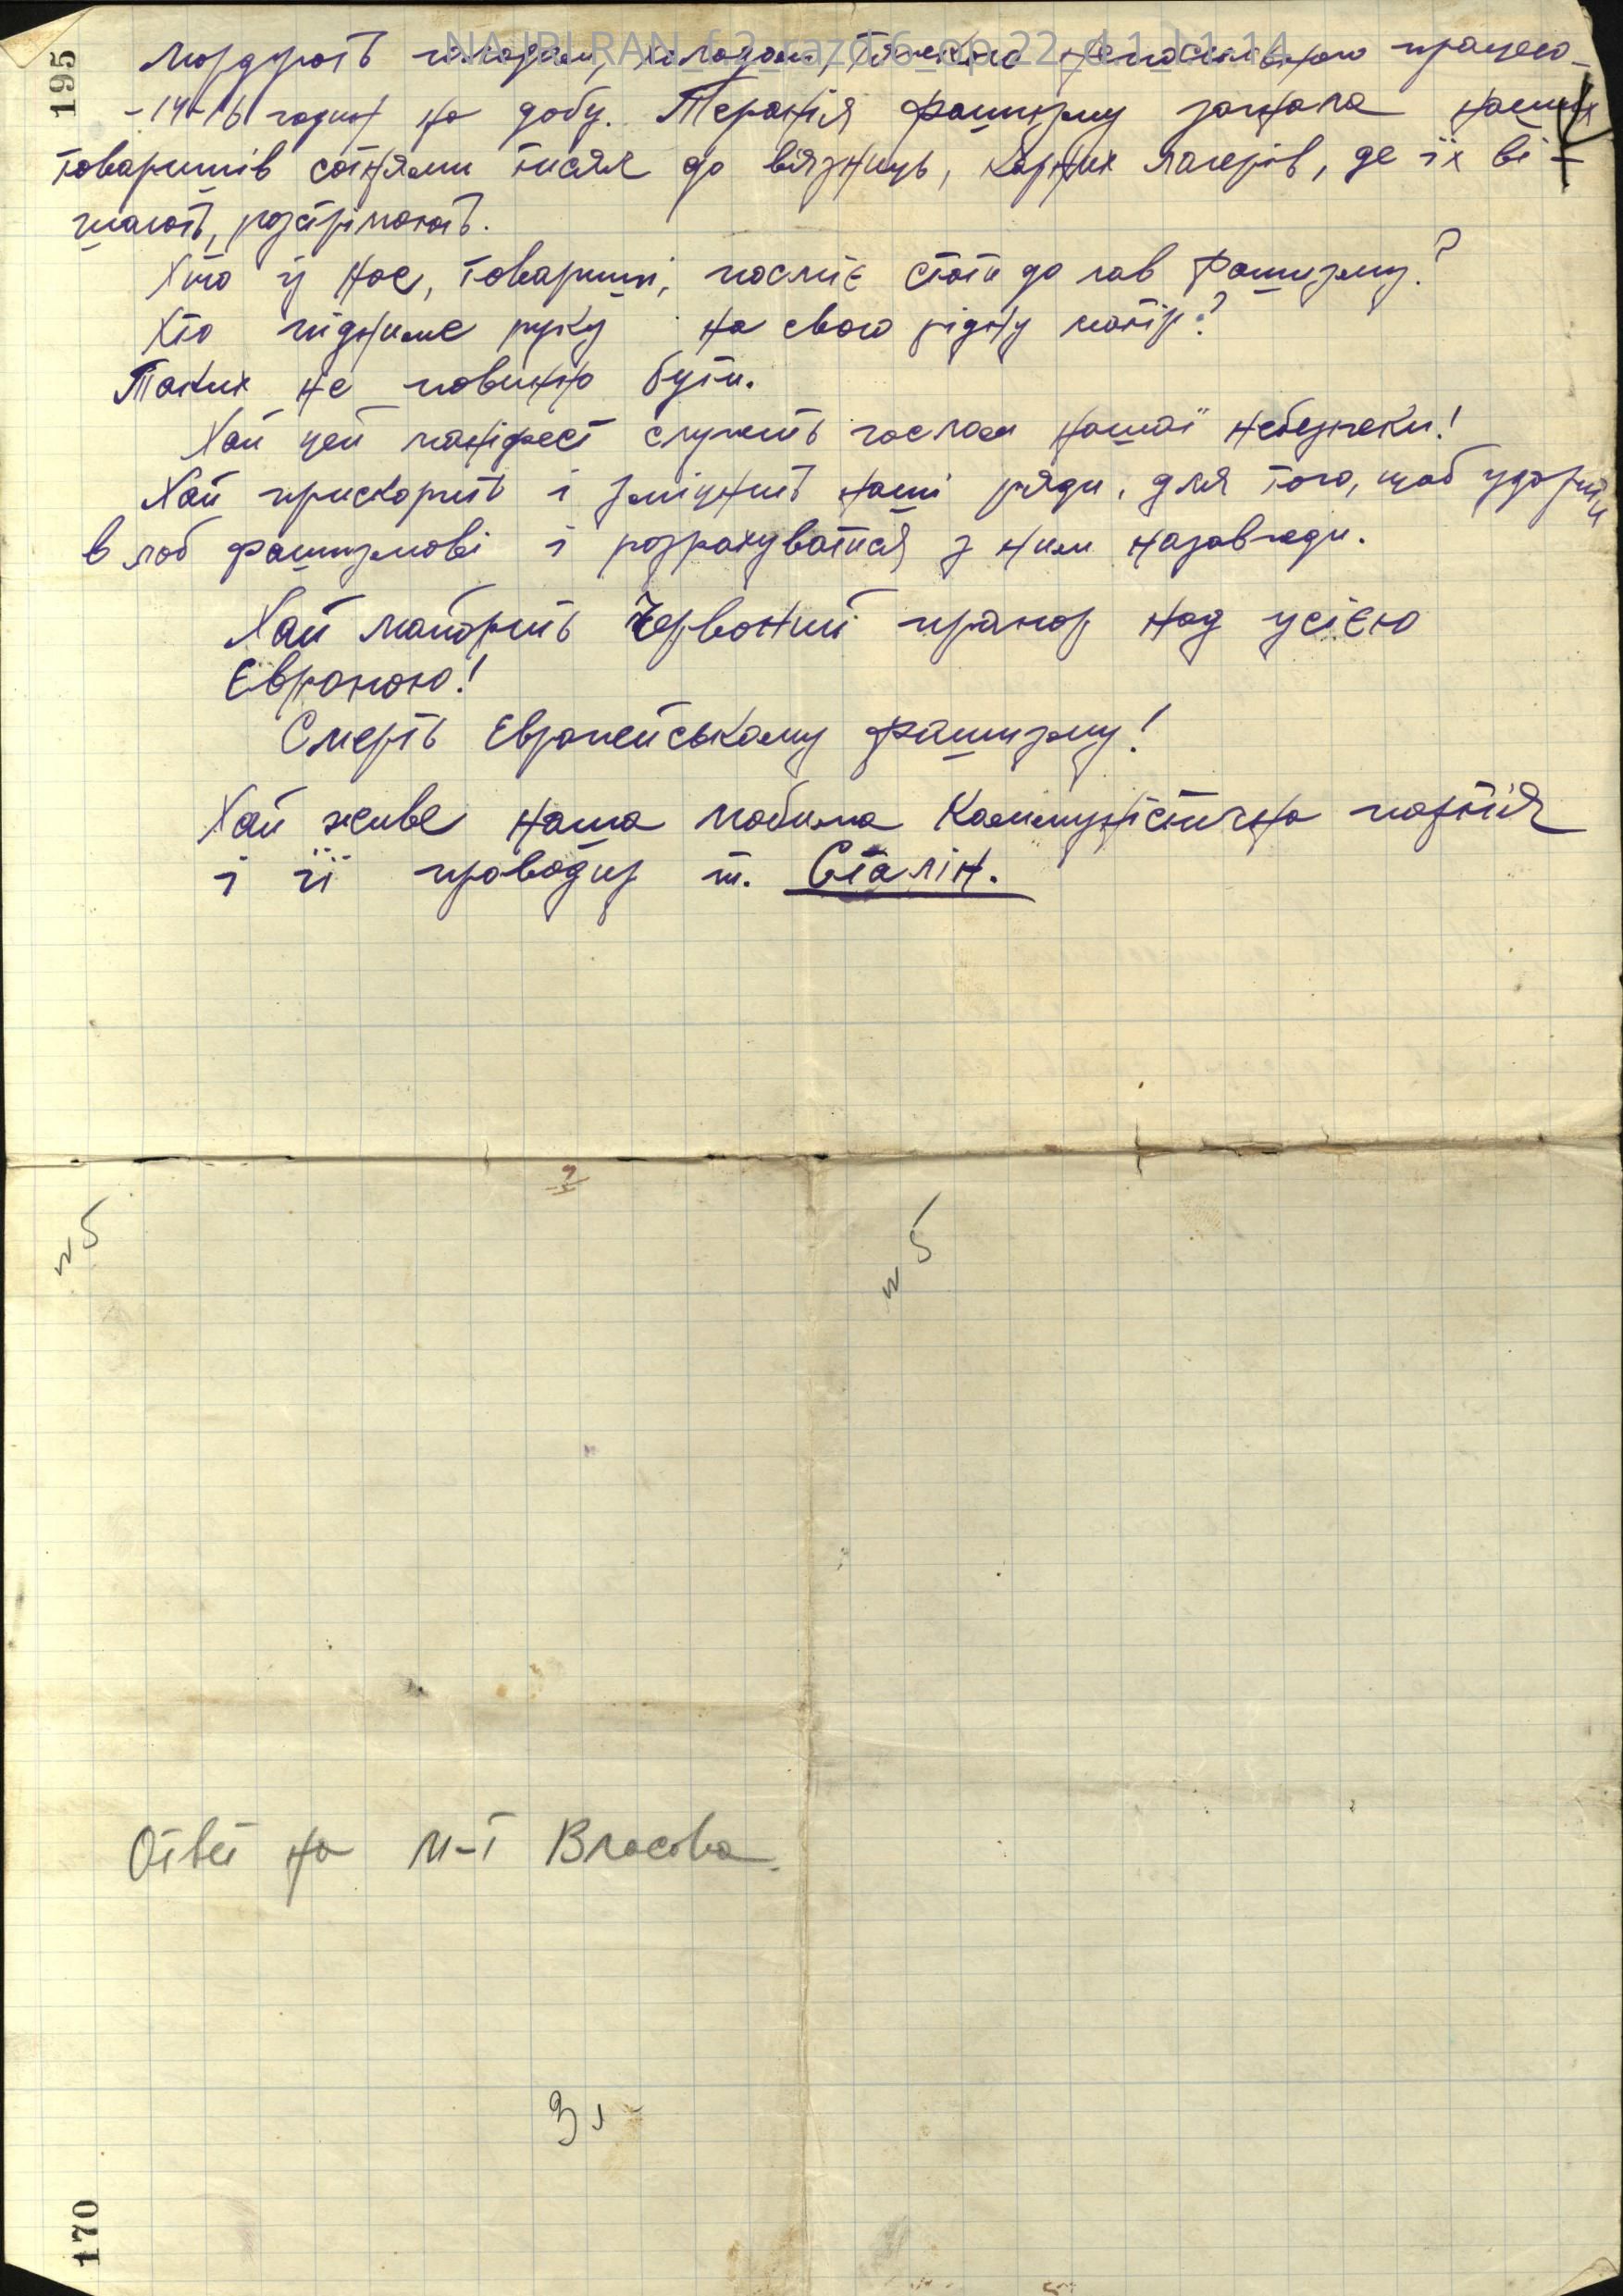 195
NA IRI RAN_f.2_razd.6_op.22_d.1_l.1-14
мордують голодом, холодом, тяжкою непосильною працею
-14-16 годин на добу. Тиранія фашизму загнала наших
товаришів сотнями тисяч до вязниць, карних лагерів, де їх ві-
шають, розстрілюють.
Хто із нас, товариші, посміє стати до лав фашизму?
Хто підниме руку на свою рідну матір?
Таких не повинно бути.
Хай цей маніфест служить гаслом нашої небезпеки!
Хай прискорить і зміцнить наші ряди, для того, щоб ударити
в лоб фашизмові і розрахуватися з ним назавжди.
Хай майорить Червоний прапор над усією
Європою!
Смерть Європейському фашизму!
Хай живе наша любима Комуністична партія
і її проводир т. Сталін.
2
№5
№5
Ответ на М-т Власова.
3л
170